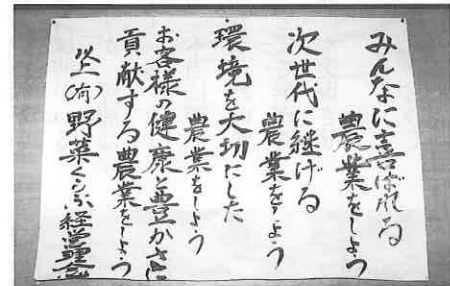 みんなに喜ばれる
農業をしよう
次世代に継げる
農業をしよう
環境を大切にした
農業をしよう
お客様の健康と豊かさに
貢献する農業をしよう
以上(有)野菜くらぶ経営理念